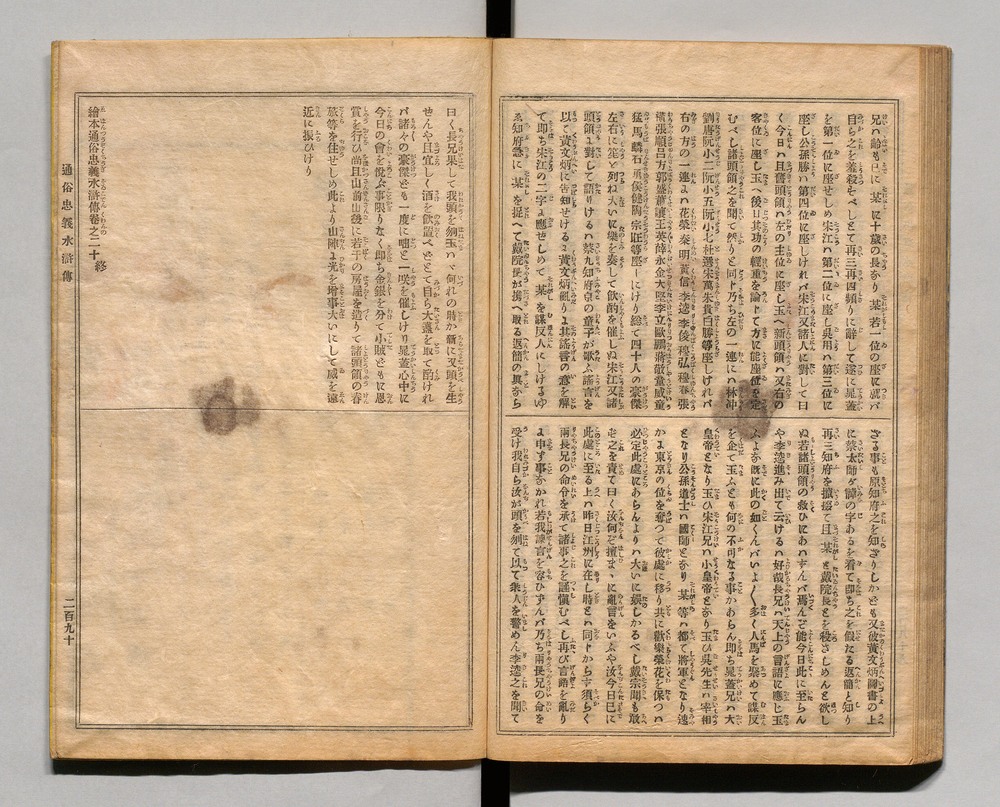 兄ハ齢も已に某に十歳の長なり某若一位の座に就バ
自ら之を羞殺すべしとて再三再四頻りに辞して遂に晁蓋
を第一位に座せしめ宋江ハ第二位に座し呉用ハ第三位に
座し公孫勝ハ第四位に座しけれバ宋江又諸人に對して曰
く今日ハ且舊頭領ハ左の主位に座し玉へ新頭領ハ又右の
客位に座し玉へ後日其功の輕重を論じて方に能座位を定
むべし諸頭領之を聞て然りと同じ乃ち左の一連にハ林冲
劉唐阮小二阮小五阮小七杜遷宋萬朱貴白勝等座しけれバ
右の方の一連にハ花榮秦明黄信李逵李俊穆弘穆春張
横張順呂方郭盛蕭讓王英薛永金大堅李立歐鵬蒋敬童威童
猛馬麟石勇侯健陶宗旺等座しにけり総て四十人の豪傑
左右に座を列ね大いに樂を奏して飲酌を催しぬ宋江又諸
頭領に對して語りけるハ蔡九知府京の童子が歌ふ謡言を
以て黄文炳に告知せけるに黄文炳其謡言の意を解
て即ち宋江の二字に應せしめて某を謀反人にしけるゆ
ゑ知府急に某を捉へて戴院長が携へ取る返簡の眞なら
ざる事も原知府之を知ざりしかども又彼黄文炳圖書の上
に蔡太師が諱の字あるを看て即ち之を假たる返簡と知り
再三知府を攛掇て且某と戴院長とを殺さしめんと欲し
ぬ若諸頭領の救ひにあハずんバ焉んぞ能今日此に至らん
や李逵進み出て云けるハ好哉長兄ハ天上の言語に應じ玉
ふよな既にかくの如くんバいよ〱多く人馬を聚めて謀反
を企て玉ふとも何の不可なる事かあらん即ち晁蓋兄ハ大
皇帝となり玉ひ宋江兄ハ小皇帝となり玉ひ呉先生ハ宰相
となり公孫道士ハ國師となり某等ハ都て將軍となり速
かに東京の位を奪つて彼處に移り共に歡樂榮花を保つハ
必定此處にあらんよりハ大いに娯しかるべし戴宗聞も敢
ず之を責て曰く汝何ぞ擅まゝに亂言をいふや汝今日已に
此處に至る上ハ昨日江州に在し時とハ同じからず須らく
兩長兄の命令を承て諸事之を謹愼むべし再び言語を亂り
に申す事なかれ若我諫言を容ひずんバ乃ち兩長兄の命を
受け我自ら汝が頭を刎て以て衆人を警めん李逵之を聞て
曰く長兄果して我頭を刎玉ハヾ何れの時か新に又頭を生
ぜんや且宜しく酒を飲置べきとて自ら大盞を取て酌けれ
バ諸々の豪傑とも一度に咄と一笑を催しけり晁蓋心中に
今日の會を悦ふ事限りなく即ち金銀を分て小賊ともに恩
賞を行ひ尚且山前山後に若干の房屋を造りて諸頭領の眷
族等を住せしめ此より山陣に光を増事大いにして威を遠
近に振ひけり
繪本通俗忠義水滸傳卷之二十終
通俗忠義水滸傳
二百九十